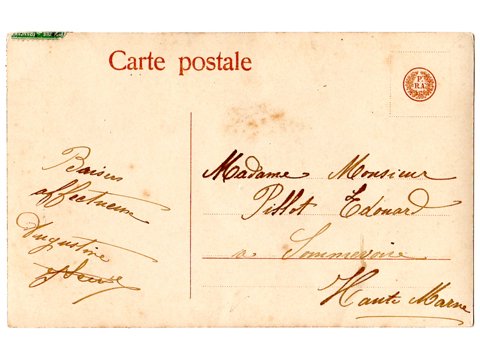 Carte postale
P.
R.A.
Baisers
affectueux
Augustine
Madame Monsieur
Pillot Edouard
a Sommevoire
Haute Marne